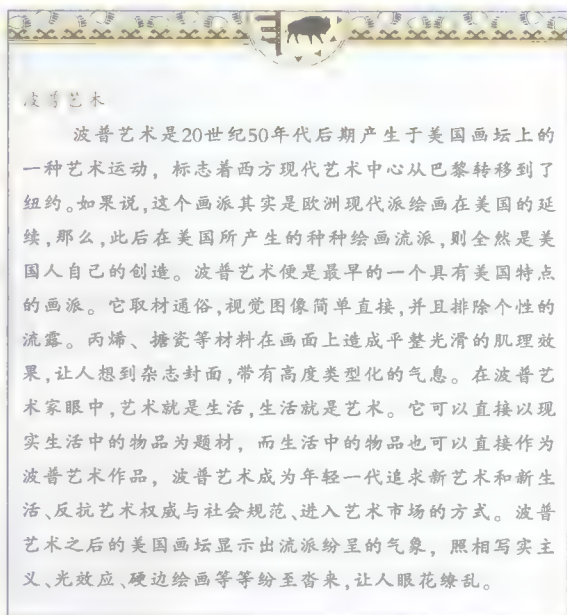 波普艺术
波普艺术是20世纪50年代后期产生于美国画坛上的
一种艺术运动，标志着西方现代艺术中心从巴黎转移到了
纽约。如果说,这个画派其实是欧洲现代派绘画在美国的延
续,那么,此后在美国所产生的种种绘画流派,则全然是美
国人自己的创造。波普艺术便是最早的一个具有美国特点
的画派。它取材通俗,视觉图像简单直接,并且排除个性的
流露。丙烯、搪瓷等材料在画面上造成平整光滑的肌理效
果,让人想到杂志封面,带有高度类型化的气息。在波普艺
术家眼中,艺术就是生活,生活就是艺术。它可以直接以现
实生活中的物品为题材，而生活中的物品也可以直接作为
波普艺术作品，波普艺术成为年轻一代追求新艺术和新生
活、反抗艺术权威与社会规范、进入艺术市场的方式。波普
艺术之后的美国画坛显示出流派纷呈的气象，照相写实主
义、光效应、硬边绘画等等纷至沓来,让人眼花缭乱。